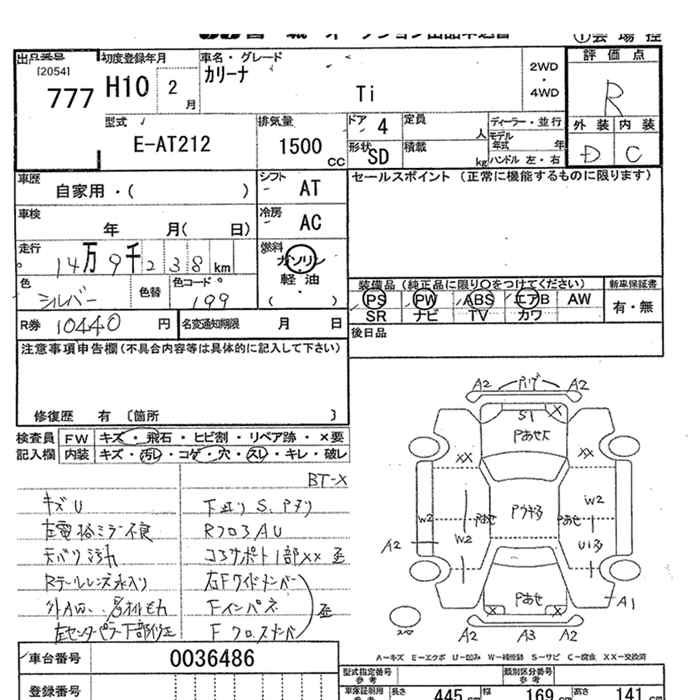 出品番号 [2054] 777
初度登録年月 H10 2月
車名・グレード カリーナ Ti
2WD・4WD
評価点 R
外装 内装
D C
型式 E-AT212
排気量 1500cc
ドア 4 定員 人
ディーラー・並行
形状 SD 積載 kg
モデル年式 年
ハンドル 左・右
車歴 自家用・( )
シフト AT
セールスポイント (正常に機能するものに限ります)
車検 年 月( 日)
冷房 AC
走行 14万9千238km
燃料 ガソリン 軽油 ( )
色 シルバー 色替 色コード 199
装備品 (純正品に限り○をつけてください) 新車保証書
PS PW ABS エアB AW 有・無
SR ナビ TV カワ
R券 10440円 名変通知期限 月 日
後日品
注意事項申告欄(不具合内容等は具体的に記入して下さい)
修復歴 有 [箇所 ]
検査員 FW キズ・飛石・ヒビ割・リペア跡・×要
記入欄 内装 キズ・汚レ・コゲ・穴・スレ・キレ・破レ
BT-X
キズU
左電格ミラー不良
天バリ汚れ
Rテールレンズ水入り
左センターピラー下部修正
RフロアAU
コアサポート1部XX 歪
右Fワイドメンバー
Fインパネ 歪
Fクロスメンバ
A2 A2
S1
XX XX
W2 W2
W2
A2 A1
A2 A3 A2
A-キズ E-エクボ U-凹み W-補修跡 S-サビ C-腐食 XX-交換済
車台番号 0036486
型式指定番号 参考 類別区分番号 参考
登録番号
車検証期用 参考 長さ 445cm 幅 169cm 高さ 141cm